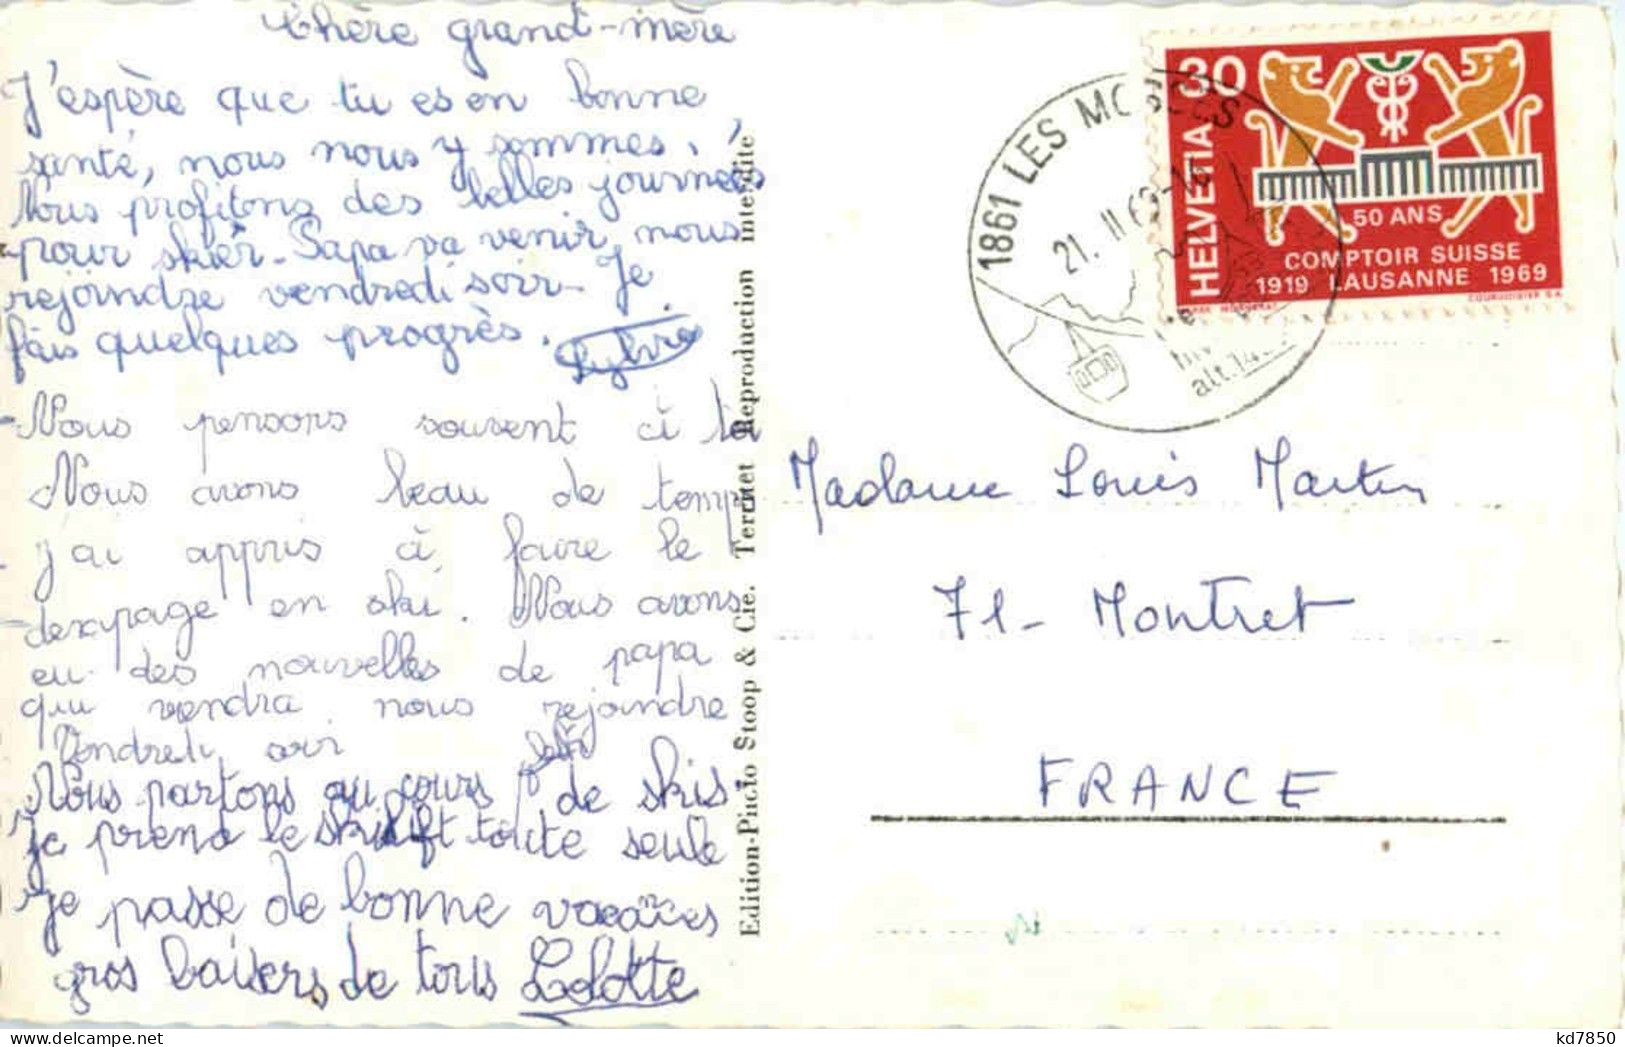 Chère grand-mère
J'espère que tu es en bonne
santé, nous nous y sommes.
Nous profitons des belles journées
pour skier. Papa va venir nous
rejoindre vendredi soir. Je
fais quelques progrès. Sylvie
Nous pensons souvent à toi
Nous avons beau de temps
j'ai appris à faire le
derapage en ski. Nous avons
eu des nouvelles de papa
qui vendra nous rejoindre
Vendredi soir
Nous partons au cours de skis
Je prend le skilift toute seule
Je passe de bonne vacances
gros baisers de tous Lolotte
Edition-Photo Stoop & Cie. Territet Reproduction interdite
1861 LES MOSSES
21. II 69-14
alt. 14
HELVETIA 30
50 ANS
COMPTOIR SUISSE
1919 LAUSANNE 1969
COURVOISIER S.A.
Madame Louis Martin
71- Montret
FRANCE
kd7850